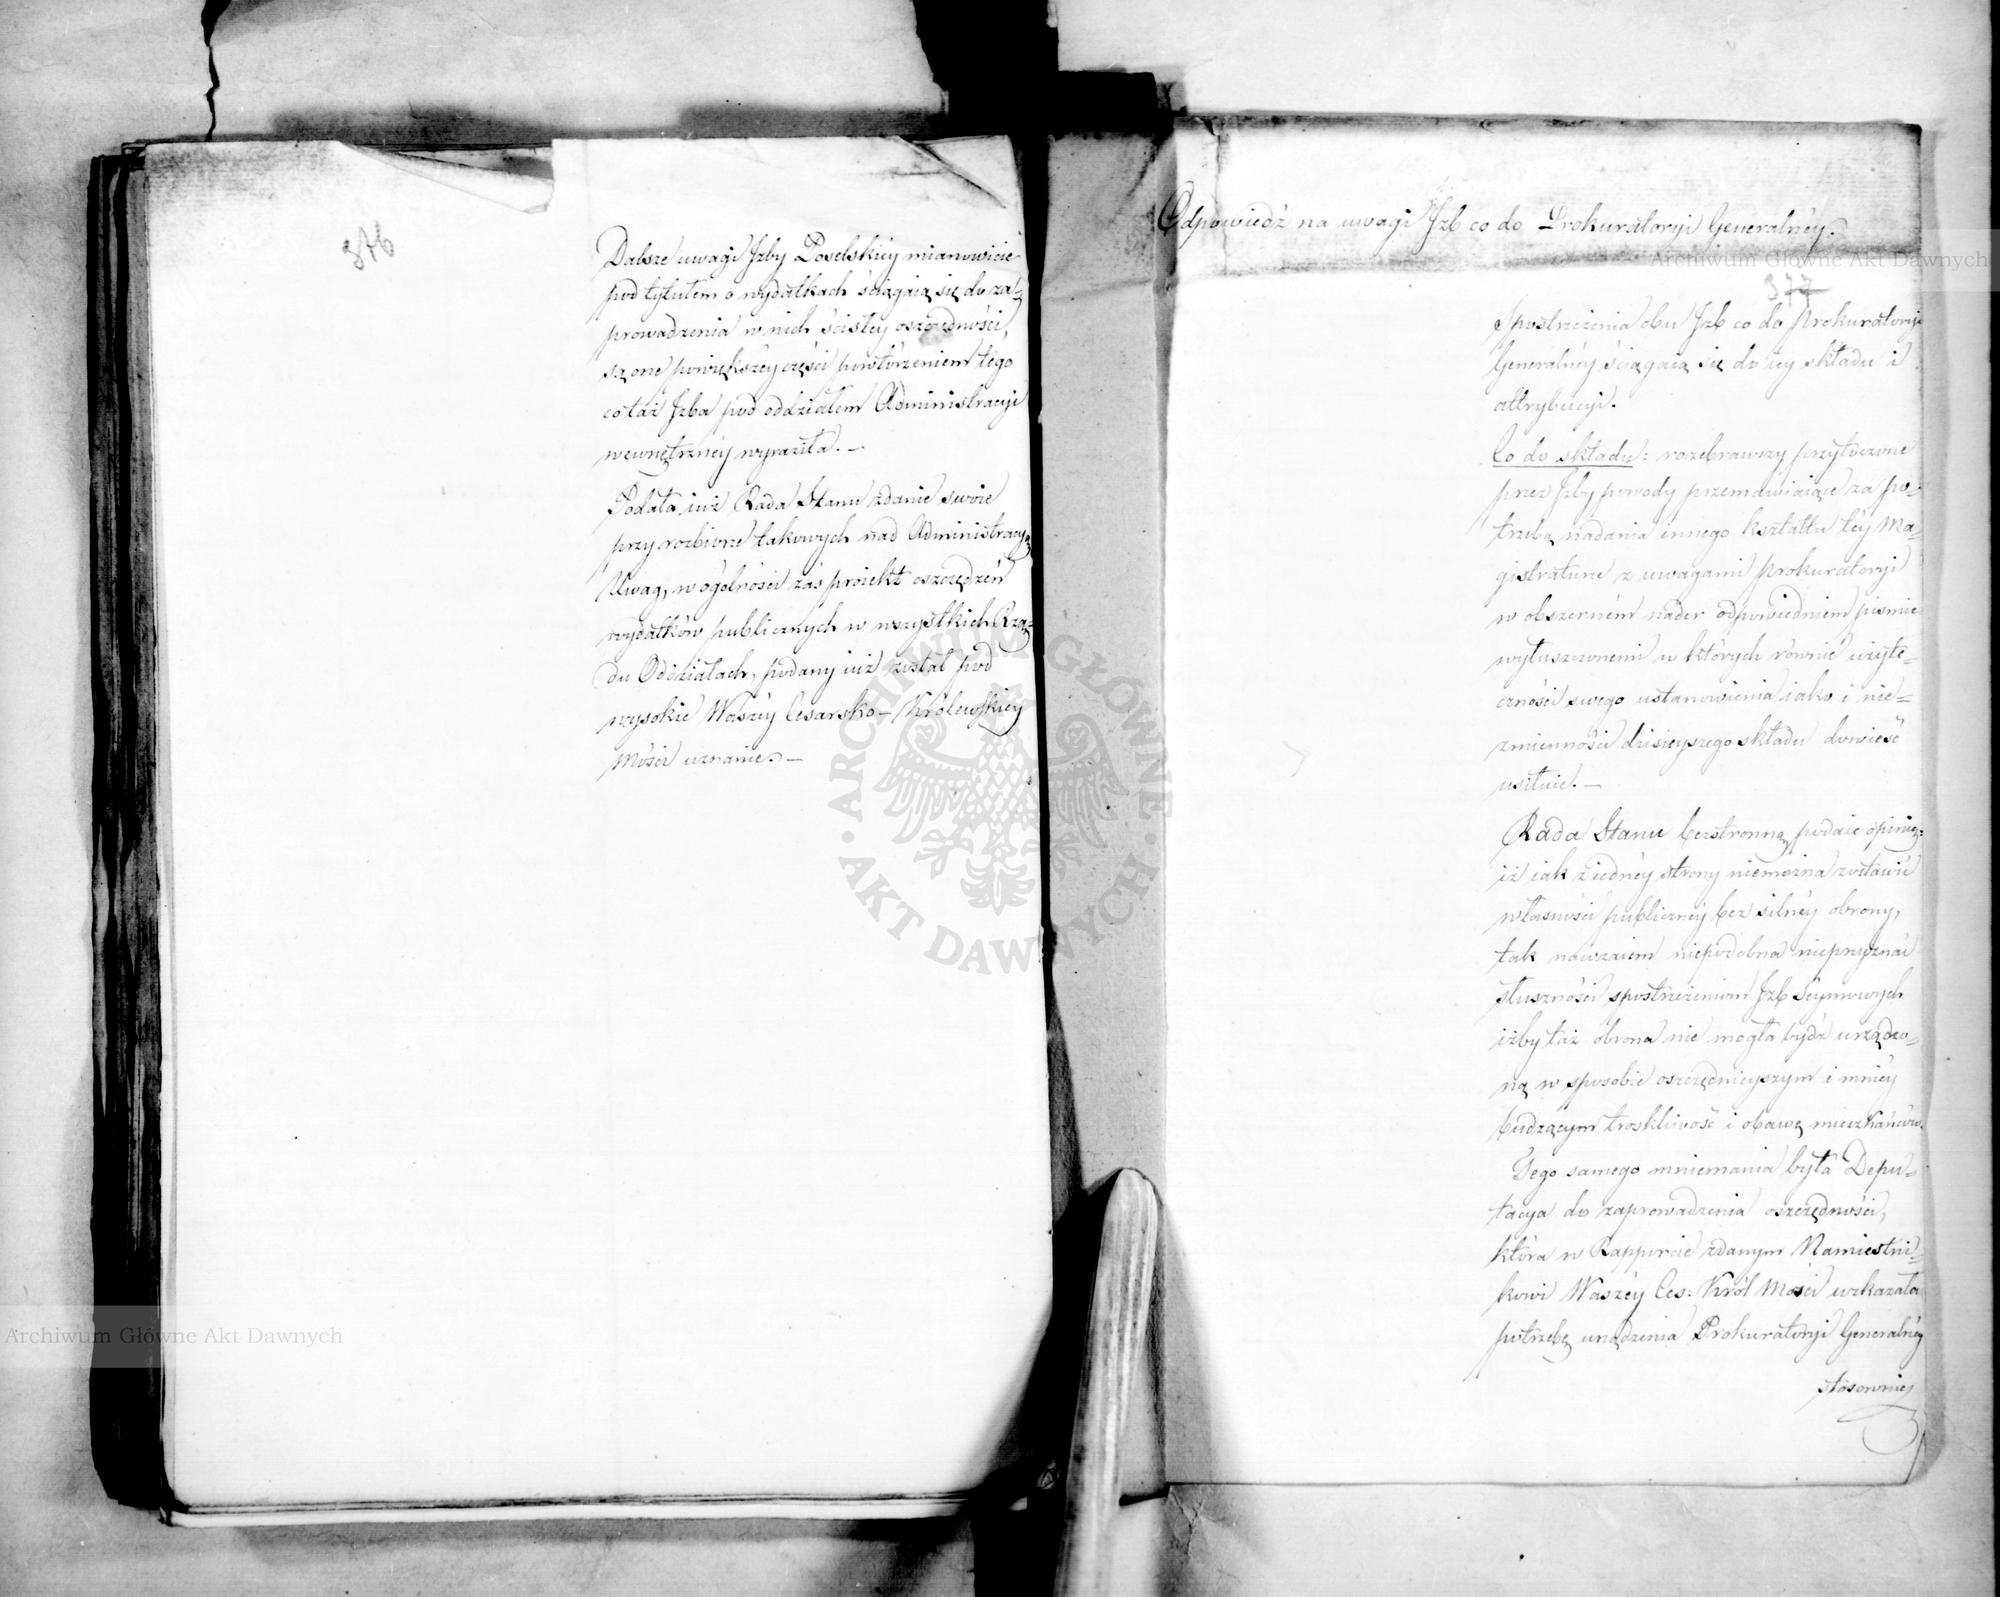 376
Dalsze uwagi Jzby Poselskiey mianowicie
pod tytułem o wydatkach ściągaią się do za=
prowadzenia w nich ścisłey oszczędności,
są one powiększéy części powtórzeniem tego
co taż Jzba pod oddziałem Administracyi
wewnętrznéy wyraziła. —
Podała iuż Rada Stanu zdanie swoie
przy rozbiorze takowych nad Administracyą
Uwag, w ogólności zaś proiekt oszczędzeń
wydatków publicznych w wszystkich Rzą=
du Oddziałach, podany iuż został pod
wysokie Waszéy Cesarsko-Królewskiey
Mości uznanie. —
Odpowiedź na uwagi Jzb co do Prokuratoryi Generalnéy.
377
Spostrzeżenia obu Jzb co do Prokuratoryi
Generalnéy ściągaią się do iey składu i
attrybucyi.
Co do składu: rozebrawszy przytoczone
przez Jzby powody przemawiaiące za po=
trzebą nadania innego kształtu téy Ma=
gistraturze z uwagami Prokuratoryi
w obszerném nader odpowiedniem piśmie
wyłuszczonemi w których równie użyte=
czności swego ustanowienia iako i nie=
zmienności dzisieyszego składu dowieść
usiłuie. —
Rada Stanu bezstronną podaie opinią:
iż iak z iednéy strony niemożna zostawić
własności publicznéy bez silnéy obrony,
tak nawzaiem niepodobna nieprzyznać
słuszności spostrzeżeniom Jzb Seymowych
iżby taż obrona nie mogła bydź urządzo=
ną w sposobie oszczędnieyszym i mniéy
budzącym troskliwość i obawę mieszkańców.
Tego samego mniemania była Depu=
tacya do zaprowadzenia oszczędności,
która w Rapporcie zdanym Namiestni=
kowi Waszéy Ces: Król Mości wskazała
potrzebę urządzenia Prokuratoryi Generalnéy
stósowniéy
ARCHIWUM GŁÓWNE
AKT DAWNYCH
Archiwum Główne Akt Dawnych
Archiwum Główne Akt Dawnych